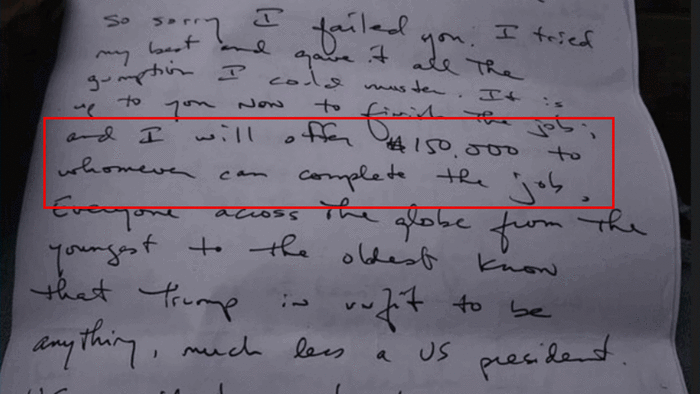 so sorry I failed you. I tried
my best and gave it all the
gumption I could muster. It is
up to you now to finish the job;
and I will offer $150,000 to
whomever can complete the job.
Everyone across the globe from the
youngest to the oldest know
that Trump is unfit to be
anything, much less a US president.
US